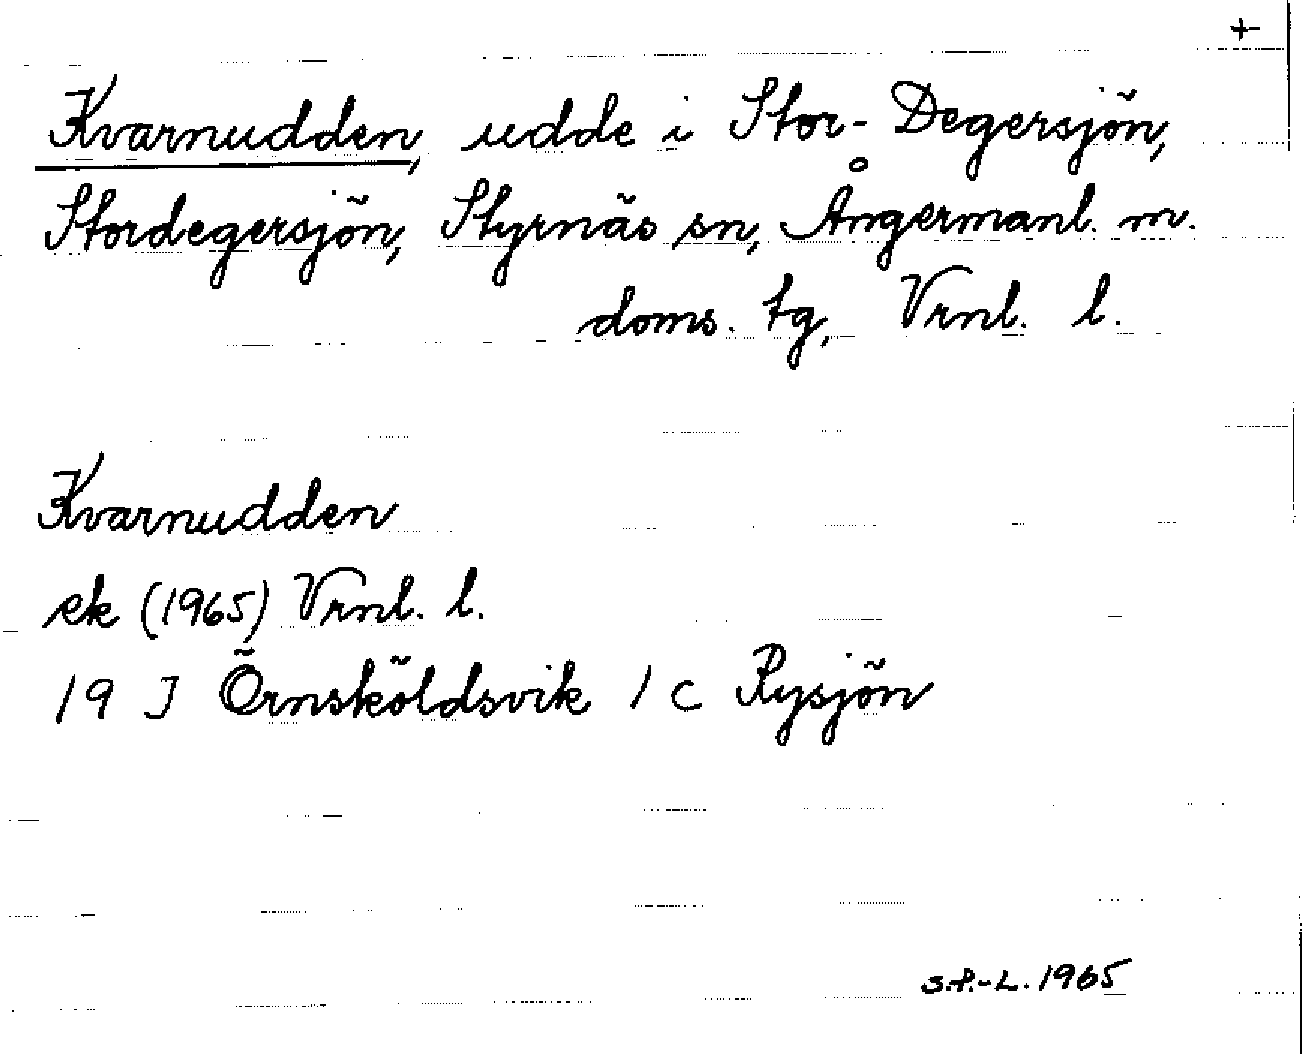 +
Kvarnudden, udde i Stor-Degersjön,
Stordegersjön, Styrnäs sn, Ångermanl. m.
doms. tg, Vrnl. l.
Kvarnudden
ek (1965) Vrnl. l.
19 J Örnsköldsvik 1 c Rysjön
S.P.-L. 1965